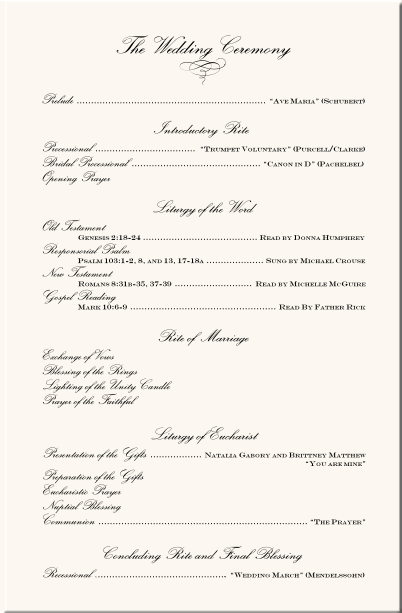 The Wedding Ceremony
Prelude .................................................................. "Ave Maria" (Schubert)
Introductory Rite
Processional ................................... "Trumpet Voluntary" (Purcell/Clarke)
Bridal Processional ............................................. "Canon in D" (Pachelbel)
Opening Prayer
Liturgy of the Word
Old Testament
Genesis 2:18-24 ........................................ Read by Donna Humphrey
Responsorial Psalm
Psalm 103:1-2, 8, and 13, 17-18a .................... Sung by Michael Crouse
New Testament
Romans 8:31b-35, 37-39 ............................. Read by Michelle McGuire
Gospel Reading
Mark 10:6-9 ................................................... Read By Father Rick
Rite of Marriage
Exchange of Vows
Blessing of the Rings
Lighting of the Unity Candle
Prayer of the Faithful
Liturgy of Eucharist
Presentation of the Gifts .................. Natalia Gabory and Brittney Matthew
"You are mine"
Preparation of the Gifts
Eucharistic Prayer
Nuptial Blessing
Communion ......................................................................... "The Prayer"
Concluding Rite and Final Blessing
Recessional .............................................. "Wedding March" (Mendelssohn)